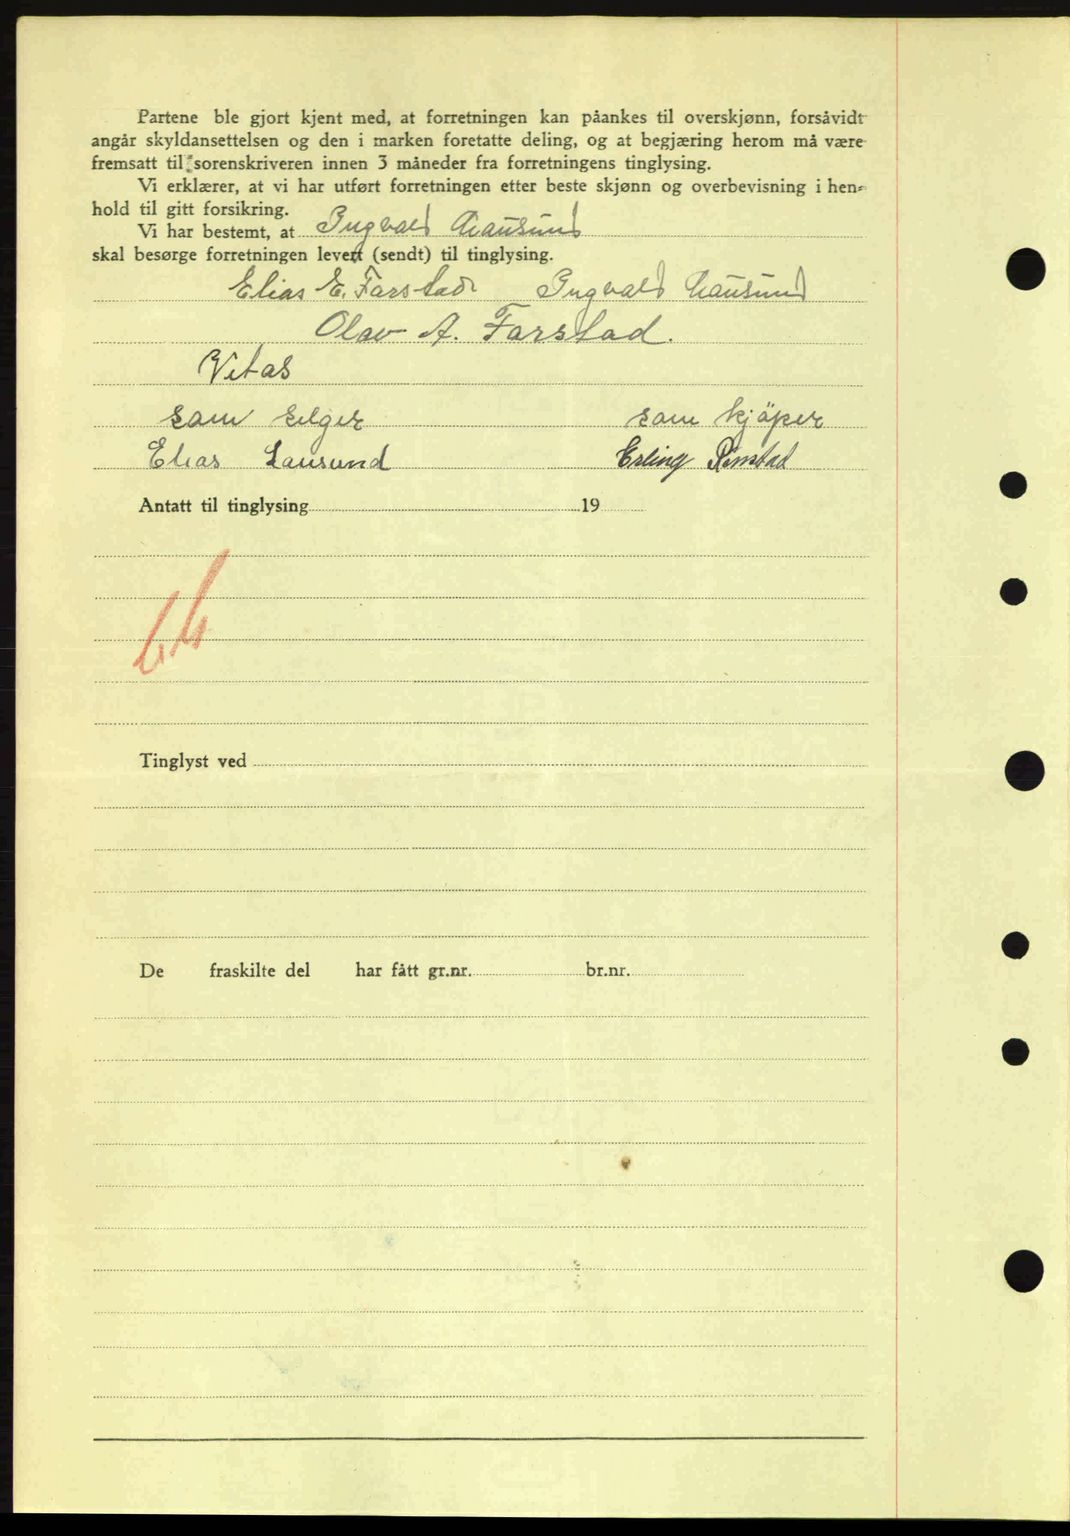 Partene ble gjort kjent med, at forretningen kan påankes til overskjønn, forsåvidt
angår skyldansettelsen og den i marken foretatte deling, og at begjæring herom må være
fremsatt til sorenskriveren innen 3 måneder fra forretningens tinglysing.
Vi erklærer, at vi har utført forretningen etter beste skjønn og overbevisning i hen-
hold til gitt forsikring.
Vi har bestemt, at Ingvald Hausund
skal besørge forretningen levert (sendt) til tinglysing.
Elias E. Farstad Ingvald Hausund
Olav A. Farstad.
Vitas
som selger som kjöper
Elias Lausund Erling Rimstad
Antatt til tinglysing 19
Tinglyst ved
De fraskilte del har fått gr.nr. br.nr.